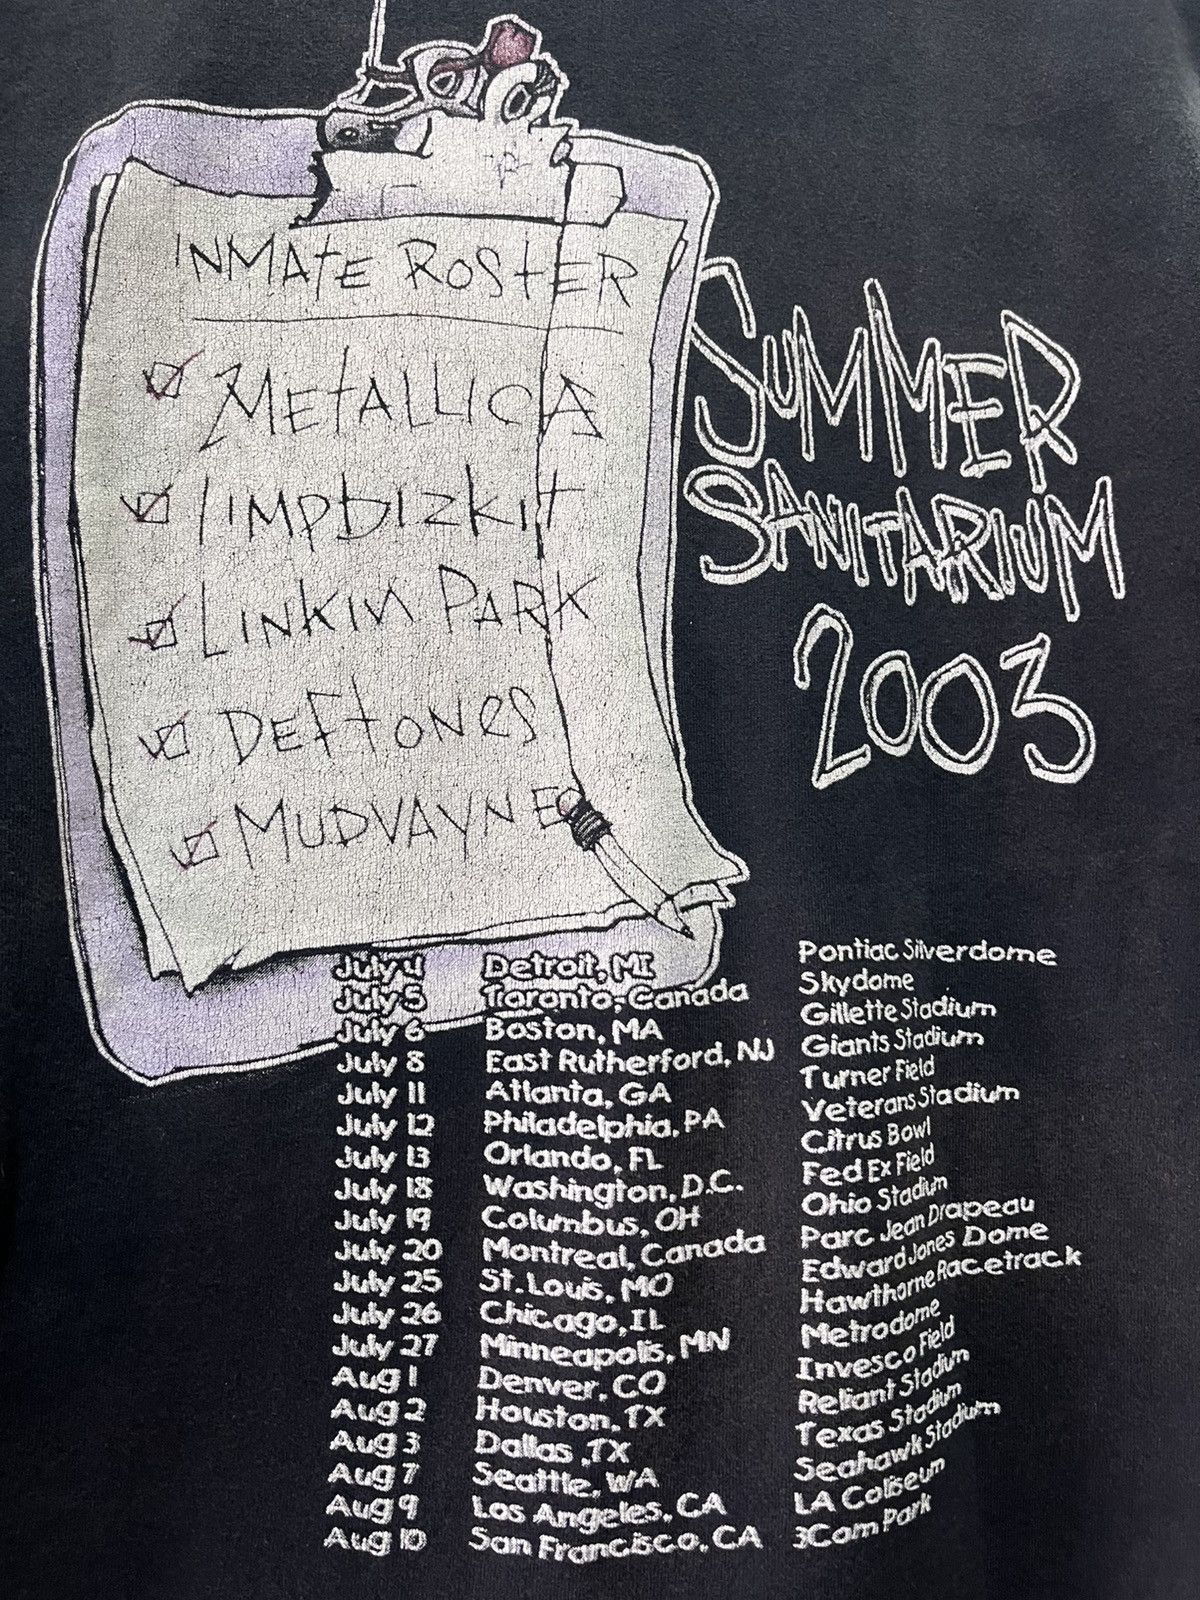 INMATE ROSTER
METALLICA
limpbizkit
LINKIN PARK
DEFTONES
MUDVAYNE
SUMMER
SANITARIUM
2003
July 4 Detroit, MI Pontiac Silverdome
July 5 Toronto, Canada Skydome
July 6 Boston, MA Gillette Stadium
July 8 East Rutherford, NJ Giants Stadium
July 11 Atlanta, GA Turner Field
July 12 Philadelphia, PA Veterans Stadium
July 13 Orlando, FL Citrus Bowl
July 18 Washington, D.C. Fed Ex Field
July 19 Columbus, OH Ohio Stadium
July 20 Montreal, Canada Parc Jean Drapeau
July 25 St. Louis, MO Edward Jones Dome
July 26 Chicago, IL Hawthorne Racetrack
July 27 Minneapolis, MN Metrodome
Aug 1 Denver, CO Invesco Field
Aug 2 Houston, TX Reliant Stadium
Aug 3 Dallas, TX Texas Stadium
Aug 7 Seattle, WA Seahawk Stadium
Aug 9 Los Angeles, CA LA Coliseum
Aug 10 San Francisco, CA 3Com Park